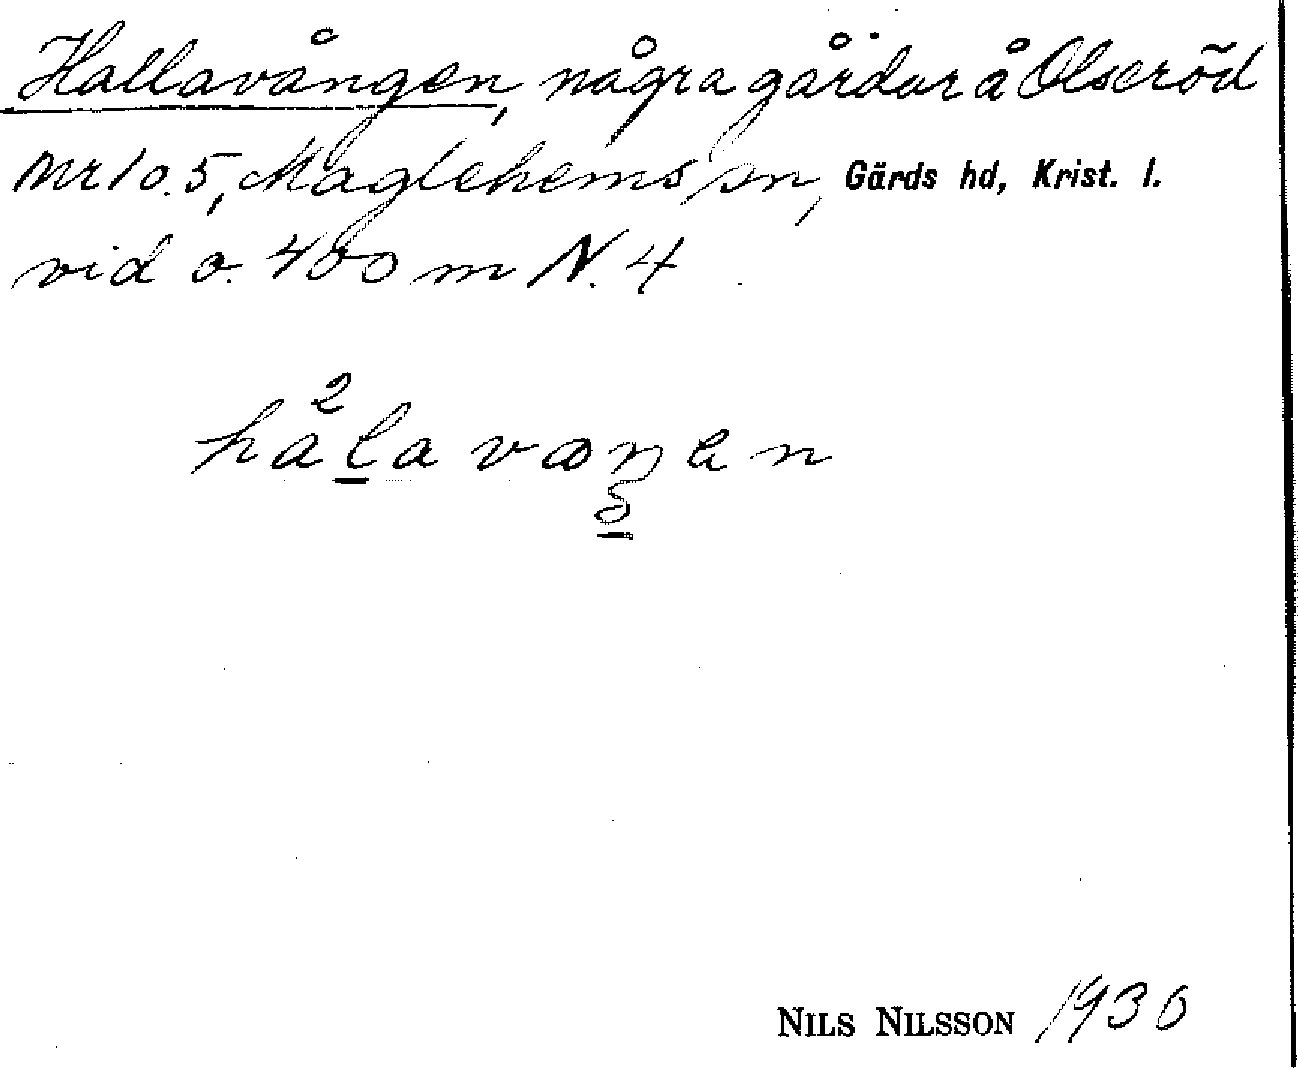 Hallavången, några gårdar å Olseröd
nr 1 o. 5, Maglehems sn, Gärds hd, Krist. l.
vid o. 400 m N. 4
hala vaŋen
2
NILS NILSSON 1930